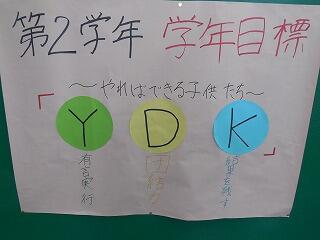 第2学年 学年目標
～やればできる子供たち～
「YDK」
有言実行
団結力
結果を残す